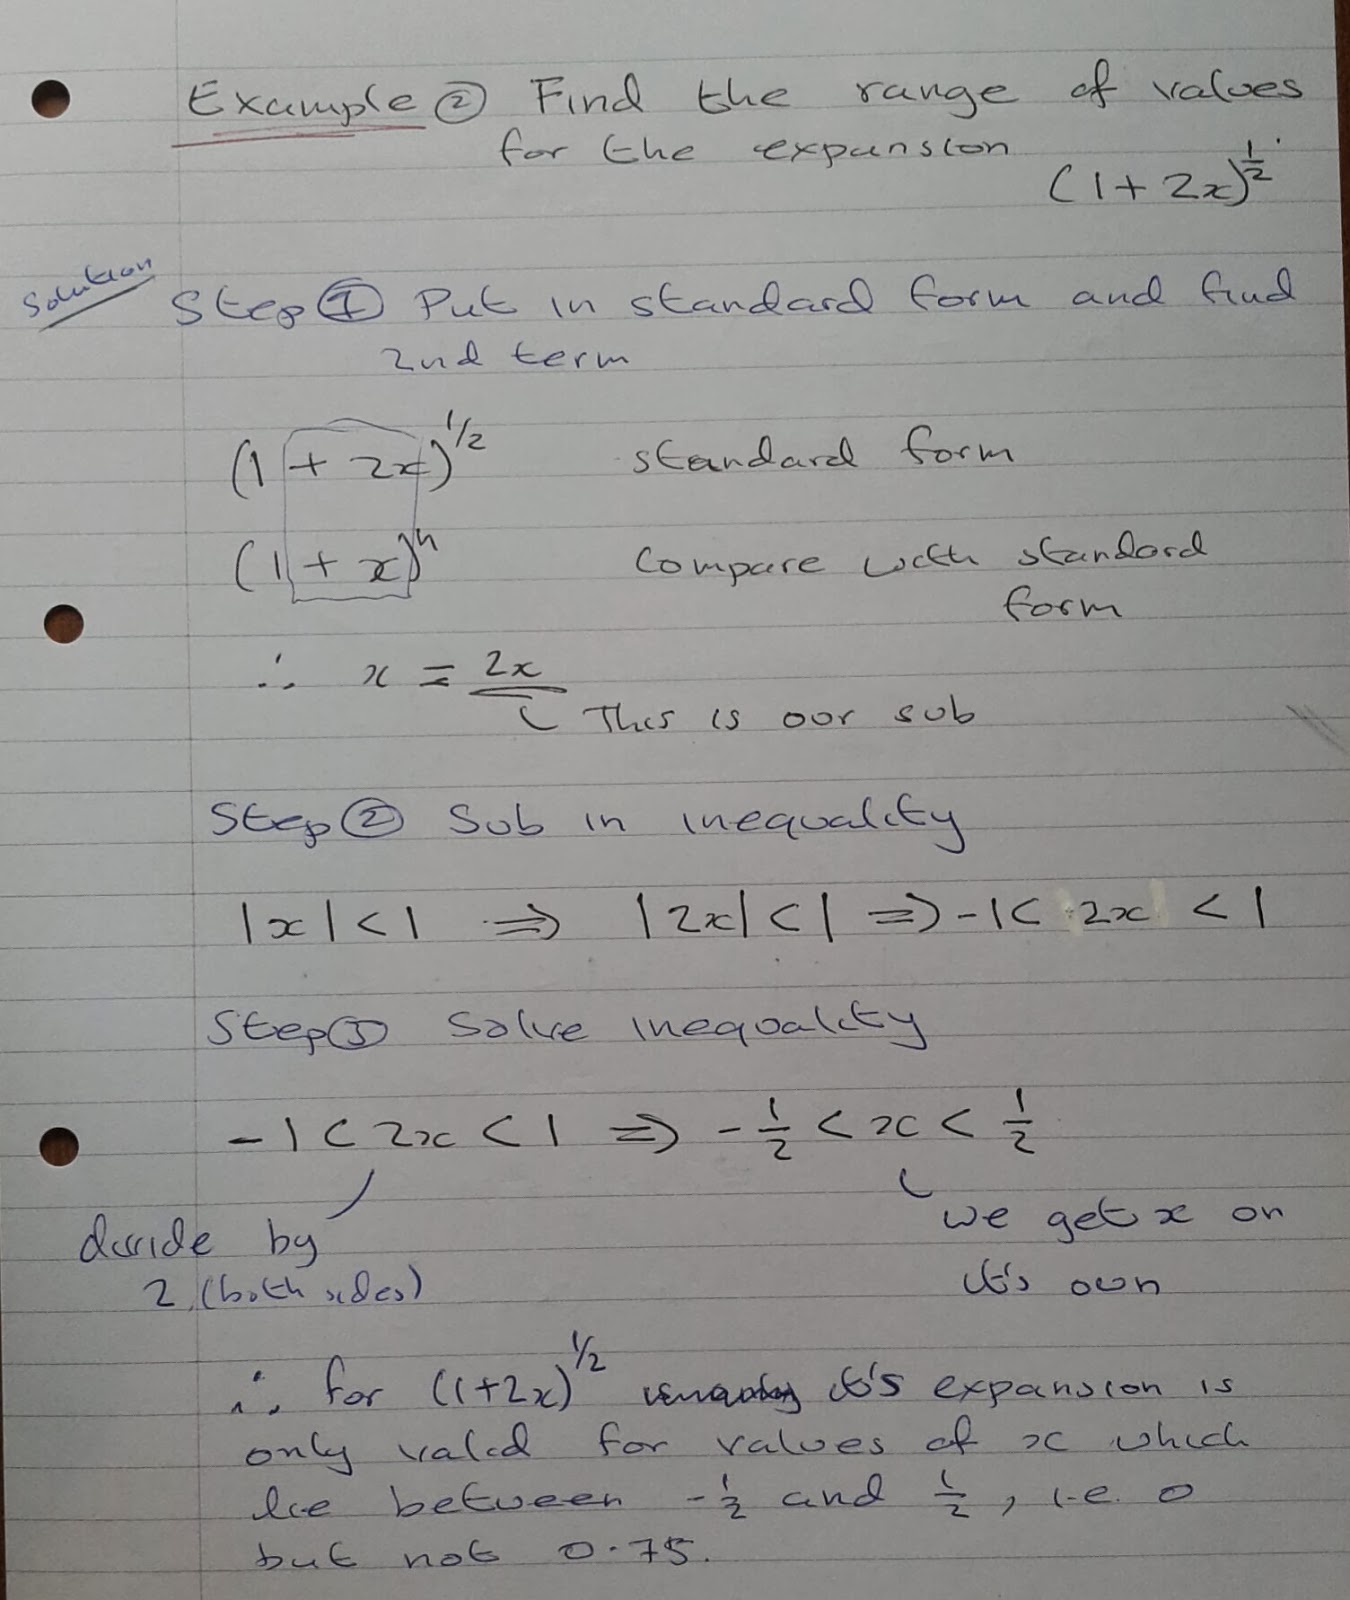 Example ② Find the range of values
for the expansion
(1 + 2x)^½
Solution
Step ① Put in standard form and find
2nd term
(1 + 2x)^1/2 standard form
(1 + x)^n Compare with standard
form
∴ x = 2x
This is our sub
Step ② Sub in inequality
|x| < 1 ⇒ |2x| < 1 ⇒ -1 < 2x < 1
Step ③ Solve inequality
-1 < 2x < 1 ⇒ -½ < x < ½
divide by
2 (both sides)
we get x on
it's own
∴ for (1+2x)^1/2 it's expansion is
only valid for values of x which
lie between -½ and ½, i.e. 0
but not 0.75.